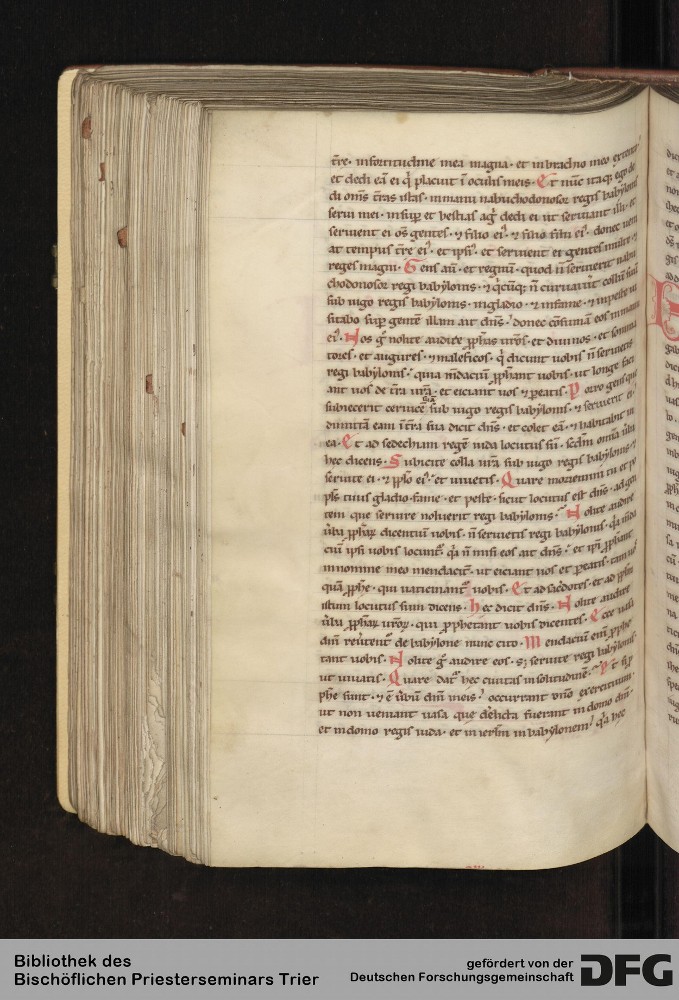 t̄re · in fortitudine mea magna · et in brachio meo extento
et dedi eā ei q̇ placuit ī oculis meis · Et nūc itaq; ego de
di om̄s t̄ras istas · in manu nabuchodonosor regis babylonis
serui mei · insup et bestias agⁱ dedi ei ut seruiant illi · et
seruient ei om̄s gentes · ⁊ filio ei᾽ · ⁊ filio filii ei᾽ · donec ueni
at tempus t̄re ei᾽ · et ipsi᾽ · et seruient ei gentes multe · ⁊
reges magni · Gens aū · et regnū · quod n̄ seruierit nabu
chodonosor regi babylonis · ⁊ q̇cūq; n̄ curuauit collū suū
sub iugo regis babylonis · in gladio · ⁊ in fame · ⁊ in peste ui
sitabo sup gentē illam ait dn̄s · donec cōsumā eos in manu
ei᾽ · Vos g° nolite audire ꝓphas ur̄os · et diuinos · et somnia
tores · et augures · ⁊ maleficos · q̇ dicunt uobis n̄ seruietis
regi babylonis · quia m̄daciū ꝓphant uobis · ut longe faci
ant uos de t̄ra ur̄a · et eiciant uos ⁊ peatis · Porro gens que
subiecerit ceruicē suā sub iugo regis babylonis · ⁊ seruierit ei ·
dimittā eam ī t̄ra sua dicit dn̄s · et colet eā · ⁊ habitabit in
ea · Et ad sedechiam regē iuda locutus sū · scdm̄ omīa ūba
hec dicens · Subicite colla ur̄a sub iugo regis babylonis · ⁊
seruite ei · ⁊ pplo ei᾽ · et uiuetis · Quare moriemini tu et po
pls̄ tuus gladio · fame · et peste · sicut locutus est dn̄s · ad gen
tem que seruire noluerit regi babylonis · Nolite audire
ūba ꝓphaꝝ dicentiū uobis · n̄ seruietis regi babylonis · q̄a m̄da
ciū ipsi uobis locunt᾽ · q̄a n̄ misi eos ait dn̄s · et ipi ꝓphant
in nomine meo mendacit̄ · ut eiciant uos et peatis · tam uos
quā ꝓphe · qui uaticinant᾽ uobis · Et ad sac̄dotes · et ad pplm
istum locutus sum dicens · Hec dicit dn̄s · Nolite audire
ūba ꝓphaꝝ ur̄oꝝ · qui ꝓphetant uobis dicentes · Ecce uasa
dn̄i reūtent᾽ de babylone nunc cito · Mendaciū enī ꝓphe
tant uobis · Nolite g° audire eos · s; seruite regi babylonis ·
ut uiuatis · Quare dat᾽ hec ciuitas in solitudinē · Et si ꝓ
phe sunt · ⁊ ē ūbū dn̄i in eis · occurrant dn̄o exercituum ·
ut non ueniant uasa que derelicta fuerant in domo dn̄i ·
et in domo regis iuda · et in ierl̄m in babylonem · q̄a hec
Bibliothek des
Bischöflichen Priesterseminars Trier
gefördert von der
Deutschen Forschungsgemeinschaft
DFG